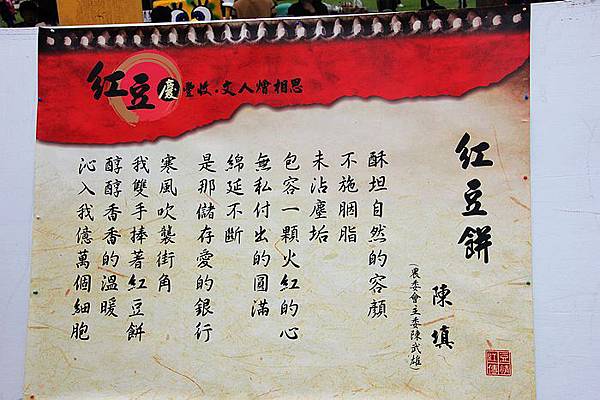 紅豆慶豐收·文人憎相思
紅豆餅
陳填
(農委會主委陳武雄)
酥坦自然的容顏
不施胭脂
未沾塵垢
包容一顆火紅的心
無私付出的圓滿
綿延不斷
是那儲存愛的銀行
寒風吹襲街角
我雙手捧著紅豆餅
醇醇香香的溫暖
沁入我億萬個細胞